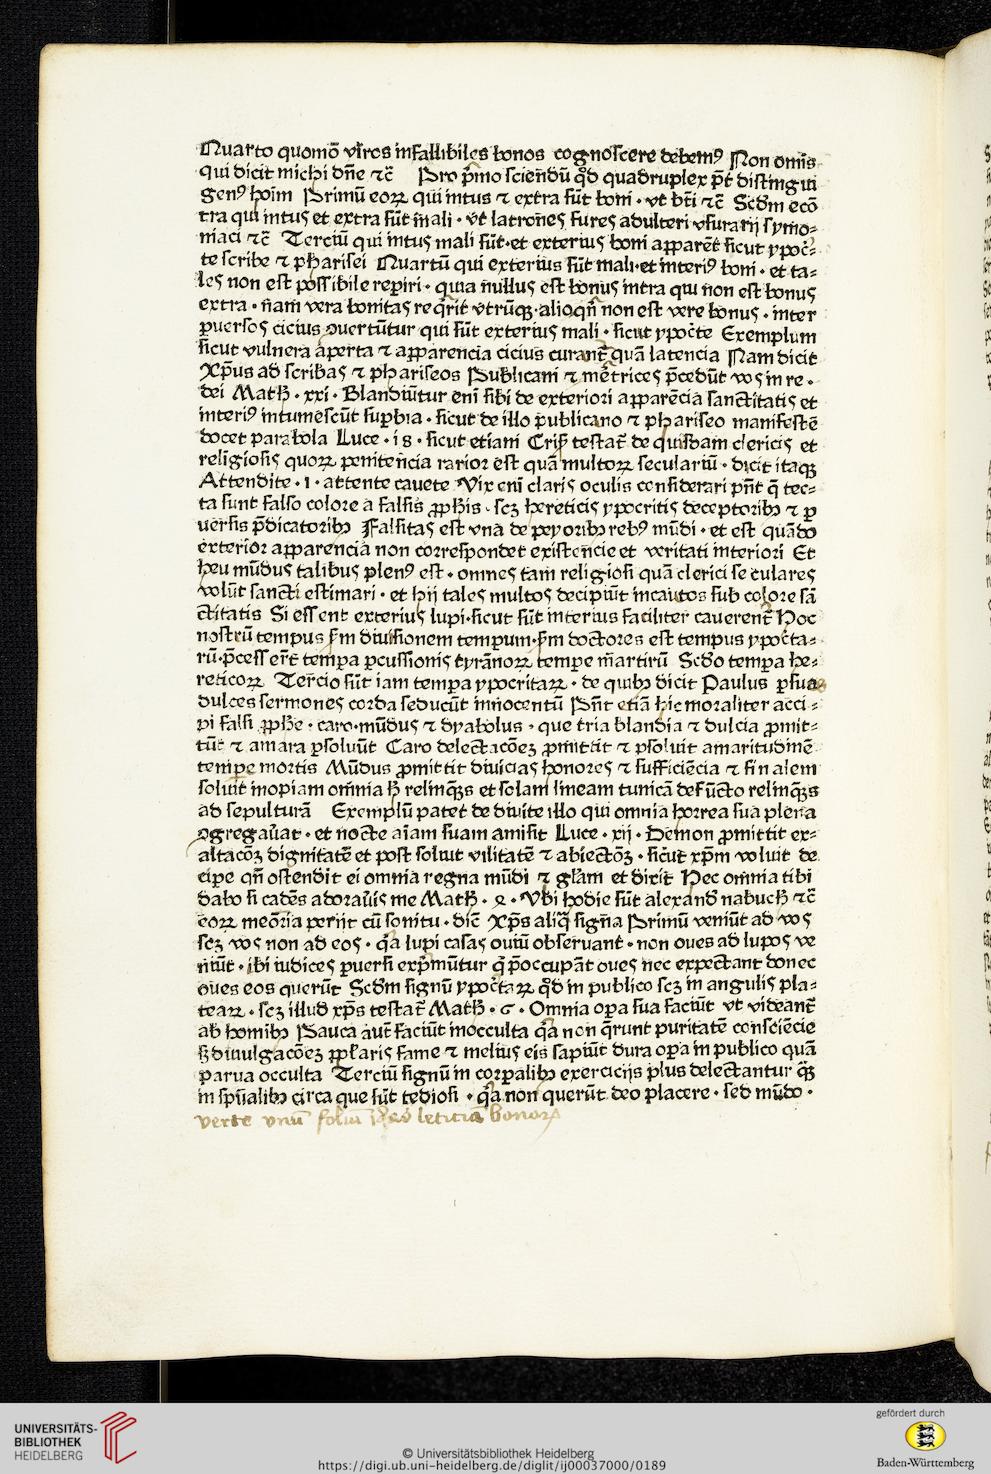 Quarto quomō viros infallibiles bonos cognoscere debemꝰ Non omīs
qui dicit michi dn̄e ⁊c̄ Pro p̄mo sciendū qd̄ quadruplex pt̄ distingui
genꝰ hoīm Primū eoꝝ qui intus ⁊ extra sūt boni · vt bt̄i ⁊c̄ Scd̄m ecō
tra qui intus et extra sūt mali · vt latrones fures adulteri vsurarij symo⸗
niaci ⁊c̄ Terciū qui intus mali sūt · et exterius boni apparēt sicut ypoc̄⸗
te scribe ⁊ pharisei Quartū qui exterius sūt mali · et interiꝰ boni · et ta⸗
les non est possibile reperiri · quia nullus est bonus intra qui non est bonus
extra · nam vera bonitas req̄rit vtrūqꝫ · alioqn̄ non est vere bonus · inter
ꝑuersos cicius ꝯuertūtur qui sūt exterius mali · sicut ypoc̄te Exemplum
sicut vulnera aperta ⁊ apparencia cicius curant̄ quā latencia Nam dicit
Xp̄us ad scribas ⁊ phariseos Publicani ⁊ mēt̄rices p̄cedūt vos in re ·
dei Math̄ · xxi · Blandiūtur eni sibi de exteriori apparēcia sanctitatis et
interiꝰ intumescūt suꝑbia · sicut de illo publicano ⁊ phariseo manifestē
docet parabola Luce · 18 · sicut etiam Cris̄ testat̄ de quibꝯdam clericis et
religiosis quoꝝ penitencia rarior est quā multoꝝ seculariū · dicit itaqꝫ
Attendite · 1 · attente cauete Vix eni claris oculis considerari pn̄t q̄ tec⸗
ta sunt falso colore a falsis ꝓph̄is · scꝫ hereticis ypocritis deceptoribꝫ ⁊ ꝑ
uersis p̄dicatoribꝫ Falsitas est vna de peyoribꝫ rebꝫ mūdi · et est quādo
exterior apparencia non correspondet existencie et veritati interiori Et
heu mūdus talibus plenꝰ est · omnes tam religiosi quā clerici seculares
volūt sancti estimari · et hij tales multos decipiūt incautos sub colore sā
ctitatis Si essent exterius lupi sicut sūt interius faciliter cauerent̄ Hoc
nostrū tempus scd̄m diuisionem tempum · scd̄m doctores est tempus ypoc̄ta⸗
rū · p̄cesserūt tempa ꝑcussionis tyrānoꝝ tempe martirū Scd̄o tempa he⸗
reticoꝝ Tercio sūt iam tempa ypocritaꝝ · de quibꝫ dicit Paulus ꝑ sua
dulces sermones corda seducūt innocentū Pn̄t etiā hic moraliter acci⸗
pi falsi ꝓph̄e · caro · mūdus ⁊ dyabolus · que tria blandia ⁊ dulcia ꝓmit⸗
tūt ⁊ amara ꝑsoluūt Caro delectacōeꝫ ꝓmittit ⁊ ꝑsoluit amaritudinē
tempe mortis Mūdus ꝓmittit diuicias honores ⁊ sufficiēcia ⁊ finalem
soluit inopiam omnia h̄ relinqꝫs et solam lineam tunicā defūcto relinqꝫs
ad sepulturā Exemplū patet de diuite illo qui omnia horrea sua plena
ꝯgregauat · et nocte aīam suam amisit Luce · xij · Demon ꝓmittit ex⸗
altacōꝫ dignitatē et post soluit vilitatē ⁊ abiectōꝫ · sicut xp̄m voluit de
cipe qn̄ ostendit ei omnia regna mūdi ⁊ glam et dixit Hec omnia tibi
dabo si cadēs adorauīs me Math̄ · 4 · Vbi hodie sūt alexand̄ nabuch̄ ⁊c̄
eoꝝ meōria periit cū sonitu · dic̄ Xp̄s aliq̄ signa Primū veniūt ad vos
scꝫ vos non ad eos · qa lupi casas ouiū obseruant · non oues ad lupos ve
niūt · ibi iudices ꝑuersi exp̄mūtur q̄ p̄occupāt oues nec expectant donec
oues eos querūt Scd̄m signū ypoc̄taꝝ qd̄ in publico scꝫ in angulis pla⸗
teaꝝ · scꝫ illud xp̄s testat̄ Math̄ · 6 · Omnia oꝑa sua faciūt vt videant̄
ab homībꝫ Pauca aūt faciūt inocculta qa non q̄runt puritatē consciēcie
sꝫ diuulgacōeꝫ ppłaris fame ⁊ melius eis sapiūt dura oꝑa in publico quā
parua occulta Terciū signū in corꝑalibꝫ exercicijs plus delectantur qꝫ
in spūalibꝫ circa que sūt tediosi · qa non querūt deo placere · sed mūdo ·
verte vnū foliū leticia bonoꝝ
UNIVERSITÄTS-
BIBLIOTHEK
HEIDELBERG
© Universitätsbibliothek Heidelberg
https://digi.ub.uni-heidelberg.de/diglit/ij00037000/0189
gefördert durch
Baden-Württemberg